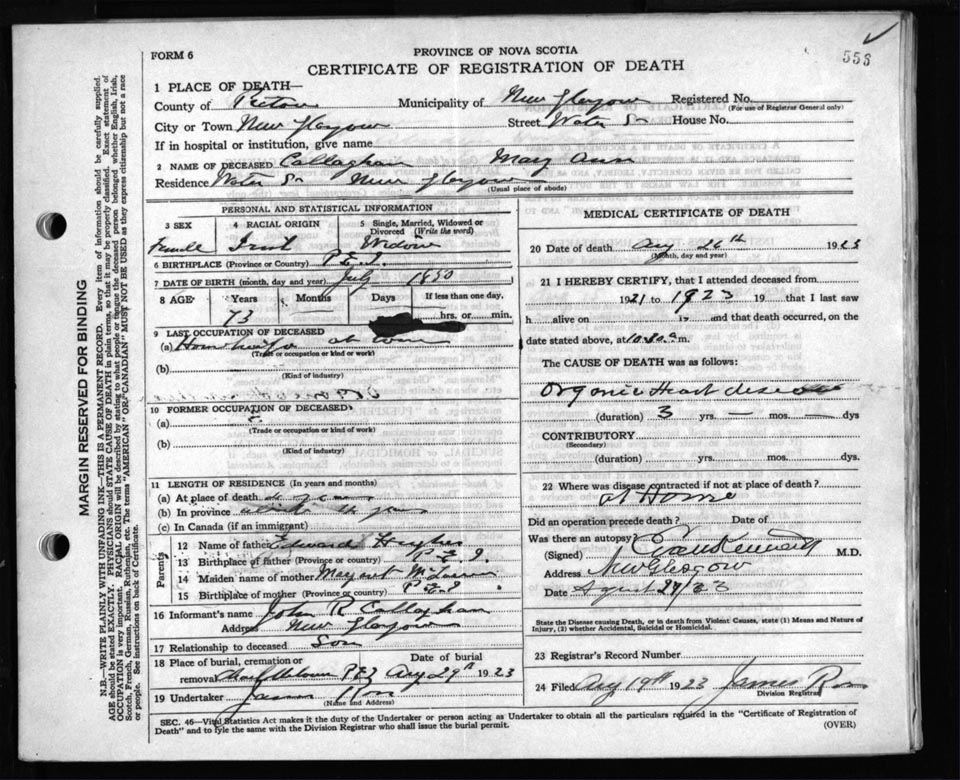 553
FORM 6
PROVINCE OF NOVA SCOTIA
CERTIFICATE OF REGISTRATION OF DEATH
1 PLACE OF DEATH—
County of Pictou Municipality of New Glasgow Registered No.
(For use of Registrar General only)
City or Town New Glasgow Street Water St House No.
If in hospital or institution, give name
2 NAME OF DECEASED Callaghan Mary Ann
Residence Water St New Glasgow
(Usual place of abode)
PERSONAL AND STATISTICAL INFORMATION
3 SEX 4 RACIAL ORIGIN 5 Single, Married, Widowed or Divorced (Write the word)
Female Irish Widow
6 BIRTHPLACE (Province or Country) P.E.I.
7 DATE OF BIRTH (month, day and year) July 1850
8 AGE Years Months Days If less than one day.
73 hrs. or min.
9 LAST OCCUPATION OF DECEASED
(a) Housewife at home
(Trade or occupation or kind of work)
(b)
(Kind of industry)
10 FORMER OCCUPATION OF DECEASED
(a)
(Trade or occupation or kind of work)
(b)
(Kind of industry)
11 LENGTH OF RESIDENCE (In years and months)
(a) At place of death
(b) In province
(c) In Canada (if an immigrant)
Parents
12 Name of father Edward Hughes
13 Birthplace of father (Province or country) P.E.I.
14 Maiden name of mother Margaret
15 Birthplace of mother (Province or country) P.E.I.
16 Informant's name John R Callaghan
Address New Glasgow
17 Relationship to deceased Son
18 Place of burial, cremation or removal Charlottetown P.E.I. Date of burial Aug 29th 1923
19 Undertaker James
(Name and Address)
MEDICAL CERTIFICATE OF DEATH
20 Date of death Aug 26th 1923
(Month, day and year)
21 I HEREBY CERTIFY, that I attended deceased from
1921 to 1923 19 that I last saw
h alive on 19 and that death occurred, on the
date stated above, at m.
The CAUSE OF DEATH was as follows:
Organic Heart disease
(duration) 3 yrs. — mos. — dys
CONTRIBUTORY
(Secondary)
(duration) yrs. mos. dys.
22 Where was disease contracted if not at place of death?
at Home
Did an operation precede death? Date of
Was there an autopsy?
(Signed) M.D.
Address New Glasgow
Date August 27/23
State the Disease causing Death, or in death from Violent Causes, state (1) Means and Nature of Injury, (2) whether Accidental, Suicidal or Homicidal.
23 Registrar's Record Number
24 Filed Aug 1923 James
Division Registrar
SEC. 46—Vital Statistics Act makes it the duty of the Undertaker or person acting as Undertaker to obtain all the particulars required in the "Certificate of Registration of
Death" and to fyle the same with the Division Registrar who shall issue the burial permit. (OVER)
MARGIN RESERVED FOR BINDING
N.B.—WRITE PLAINLY WITH UNFADING INK—THIS IS A PERMANENT RECORD. Every item of information should be carefully supplied.
AGE should be stated EXACTLY. PHYSICIANS should STATE CAUSE OF DEATH in plain terms, so that it may be properly classified. Exact statement of
OCCUPATION is very important. RACIAL ORIGIN will be described by stating to what people or tongue the deceased person belonged whether English, Irish,
Scotch, French, German, Russian, Ruthenian, etc. The terms "AMERICAN" OR "CANADIAN" MUST NOT BE USED as they express citizenship but not a race
or people. See instructions on back of Certificate.